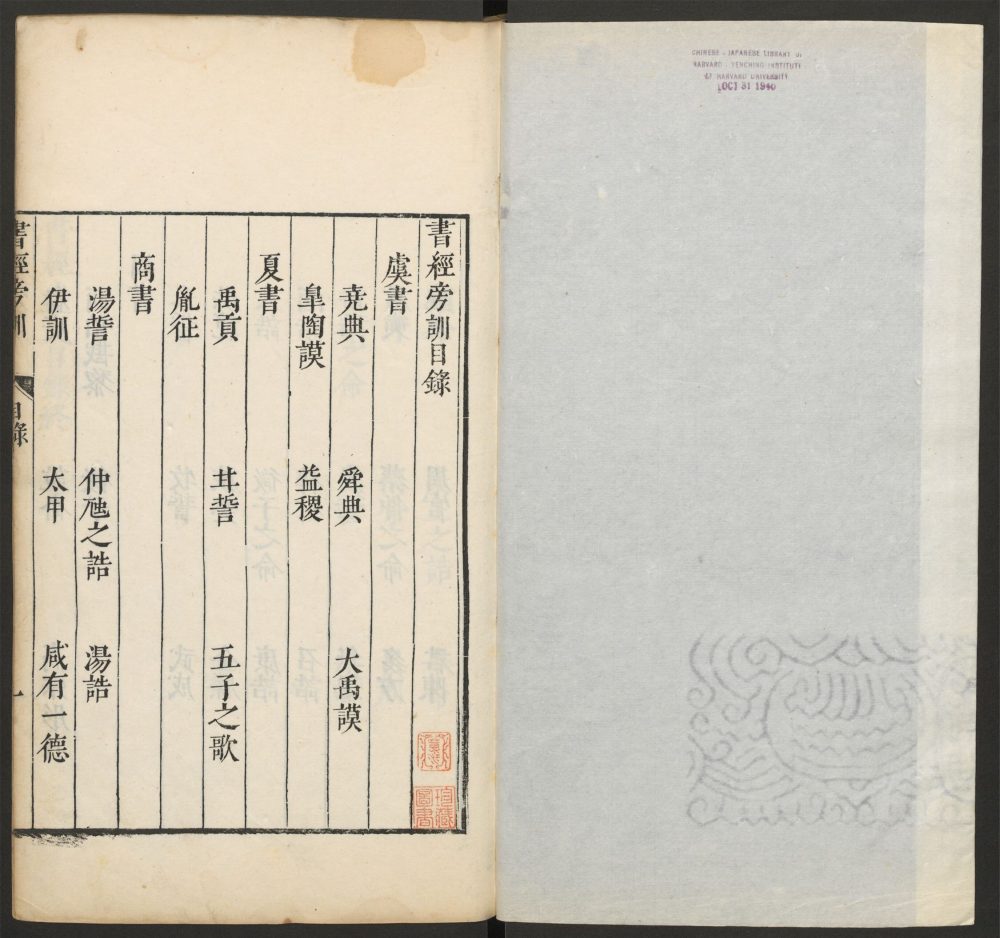 CHINESE - JAPANESE LIBRARY OF
HARVARD - YENCHING INSTITUTE
AT HARVARD UNIVERSITY
OCT 31 1940
書經旁訓目錄
虞書
堯典 舜典 大禹謨
臯陶謨 益稷
夏書
禹貢 甘誓 五子之歌
胤征
商書
湯誓 仲虺之誥 湯誥
伊訓 太甲 咸有一德
書經旁訓 目錄 一